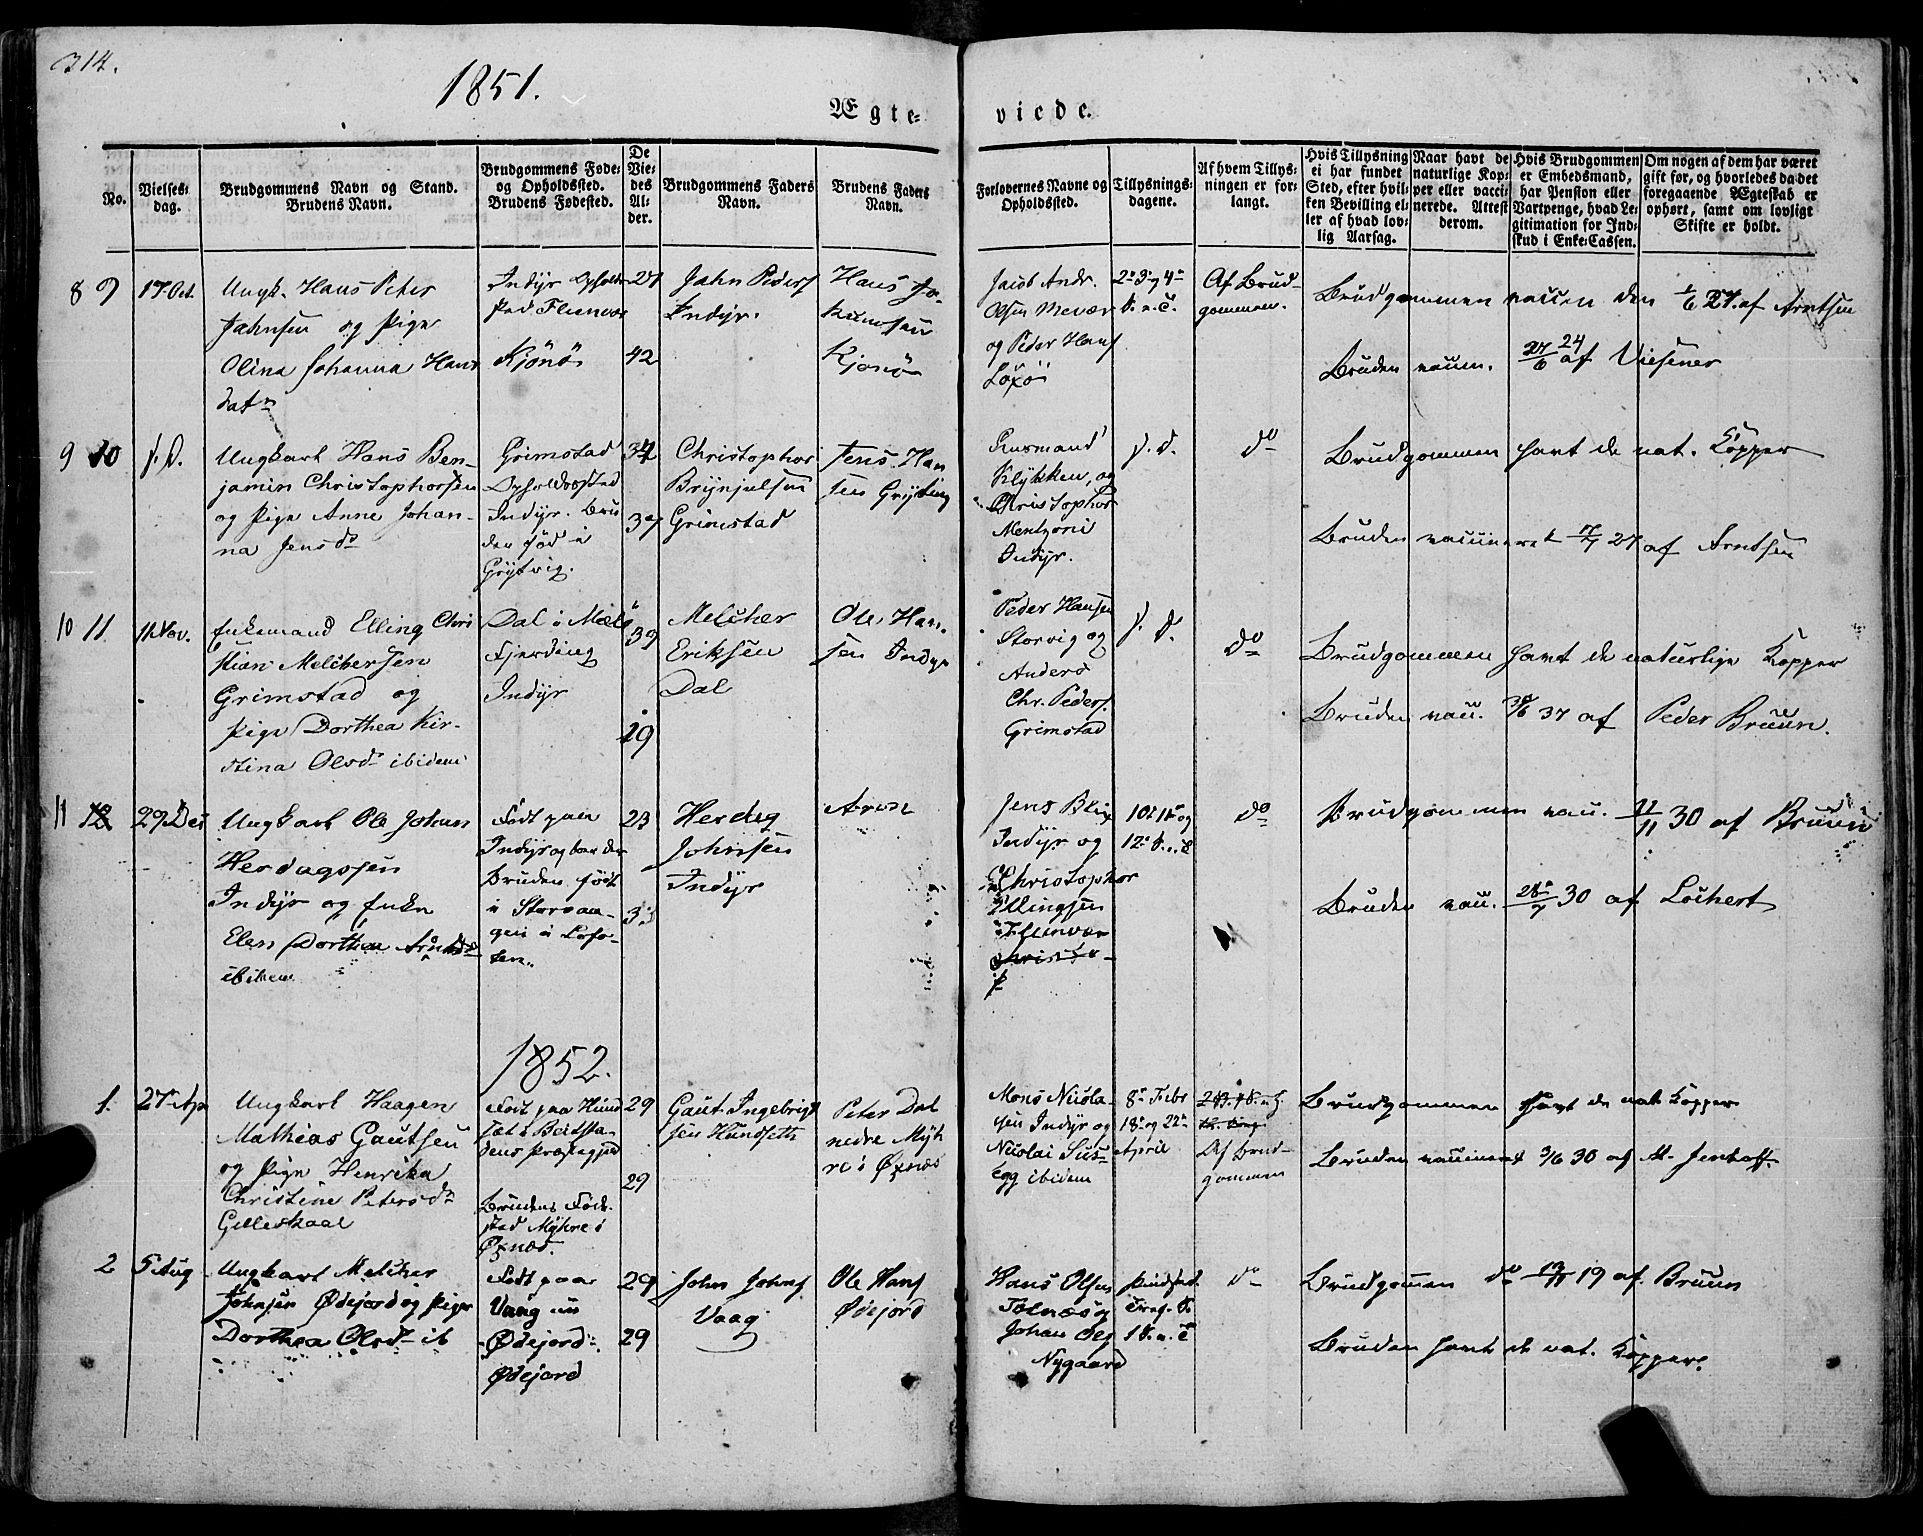 314.
1851.
Ægte=
viede.
No.
Vielses=
dag.
Brudgommens Navn og Stand.
Brudens Navn.
Brudgommens Føde=
og Opholdssted.
Brudens Fødested.
De
Vie=
des
Al=
der.
Brudgommens Faders
Navn.
Brudens Faders
Navn.
Forlovernes Navne og
Opholdssted.
Tillysnings=
dagene.
Af hvem Tillys=
ningen er for=
langt.
Hvis Tillysning
ei har fundet
Sted, efter hvil=
ken Bevilling el=
ler af hvad lov=
lig Aarsag.
Naar havt de
naturlige Kop=
per eller vacci=
nerede. Attest
derom.
Hvis Brudgommen
er Embedsmand,
har Pension eller
Vartpenge, hvad Le=
gitimation for Ind=
skud i Enke=Cassen.
Om nogen af dem har været
gift før, og hvorledes da det
foregaaende Ægteskab er
ophørt, samt om lovligt
Skifte er holdt.
8 9
17 Oct.
Ungk. Hans Peter
Johnsen og Pige
Olina Johanna Hans
dat
Indyr Opholds
sted Fleinvær
Kjönö
27
42
John Peders
Indyr.
Hans
Kjönö
Jacob Andr.
Olsen Mevær
og Peder Hans
2 3 og 4
S. e. T.
Af Brud-
gommen.
Brudgommen vaccin den 1/6 27. af Arntsen
Bruden vaccin. 27/6 24 af Viesener
9 10
s. D.
Ungkarl Hans Ben-
jamin Christophersen
og Pige Anne Johan-
na Jensd
Grimstad
Opholdssted
Indyr. Bru
den född i
Grytvig.
34
37
Christopher
Brynjulsen
Grimstad
Jens Han
sen Grytvig
Klykken, og
Christopher
Mentzoni
Indyr.
s. d.
do
Brudgommen havt de nat. Kopper
Bruden vaccineret 7/7 27 af Arntsen
10 11
11 Nov.
Enkemand Elling Chri
stian Melchersen
Grimstad og
Pige Dorthea Kir-
stina Olsd ibidem
Dal i Mel
Fjerding
Indyr
39
29
Melcher
Eriksen
Dal
Ole Han-
sen Indyr
Peder Hansen
Storvig og
Anders
Chr. Peders.
Grimstad
s. d.
do
Brudgommen havt de naturlige Kopper
Bruden vacc. 30/6 37 af Peder Bruun.
11 12
29 Dec
Ungkarl Ole Johan
Herdagssen
Indyr og Enke
Elen Dorthea
ibidem
Födt paa
Indyr og boer der
Bruden födt
i Storvaa-
gen i Lofo-
ten.
23
33
Herdag
Johnsen
Indyr
Arn
Jens Blix
Indyr og
Christopher
Ellingsen
Fleinvær
10 11 og
12 S. e. T
do
Brudgommen vacc. 11/11 30 af Bruun
Bruden vacc. 28/7 30 af Lochert
1852.
1.
27 Ap
Ungkarl Haagen
Mathias Gautsen
og Pige Henrika
Christine Petersd
Gilleskaal
Födt paa Hund
sæt i Beitsta-
dens Præstegjeld
Brudens Föde-
sted Mykre i
Øxnæs.
29
29
Gaut Ingebrigt
sen Hundseth
Peter Dal
nedre Myk
re i Øxnæs
Mons Nicola-
sen Indyr og
Nicolai Sus-
egg ibidem
8 Febr
18 og 22
April
Af Brud-
gommen
Brudgommen havt de nat Kopper
Bruden vaccineret 3/6 30 af M. Jentoft.
2
5 Aug
Ungkarl Melcher
Johnsen Ødejord og Pige
Dorthea Olsd ib
Födt paa
Vaag nu
Ødejord
Ødejord
29
29
John Johns
Vaag
Ole Hans
Ødejord
Hans Olsen
Tolnæs og
Johan
Nygaard
1 S. e. T
do
Brudgommen do 13/11 19 af Bruun
Bruden havt de nat. Kopper.